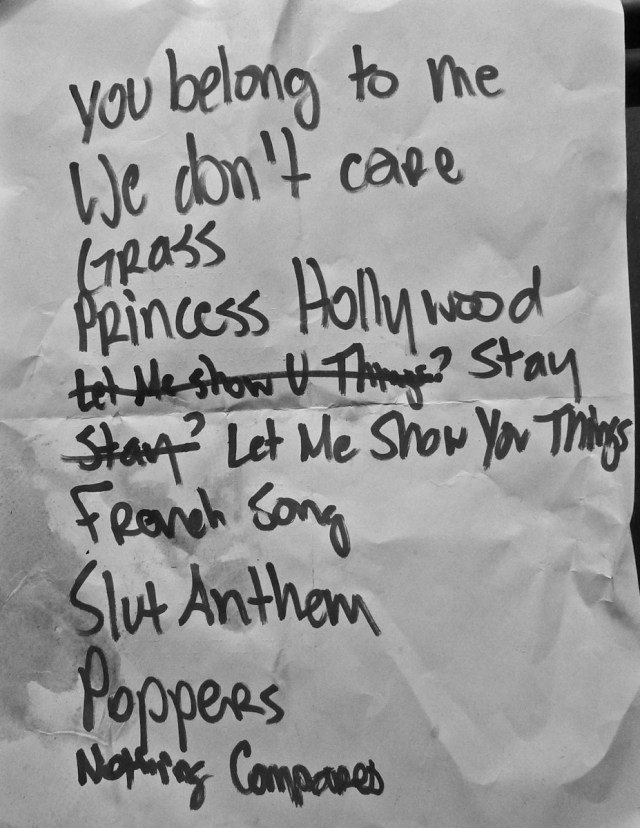 you belong to me
We don't care
Grass
Princess Hollywood
Let Me Show U Things? Stay
Stay? Let Me Show You Things
French Song
Slut Anthem
Poppers
Nothing Compares